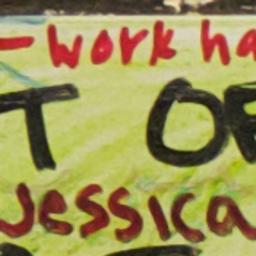 -work ha
T OF
Jessica